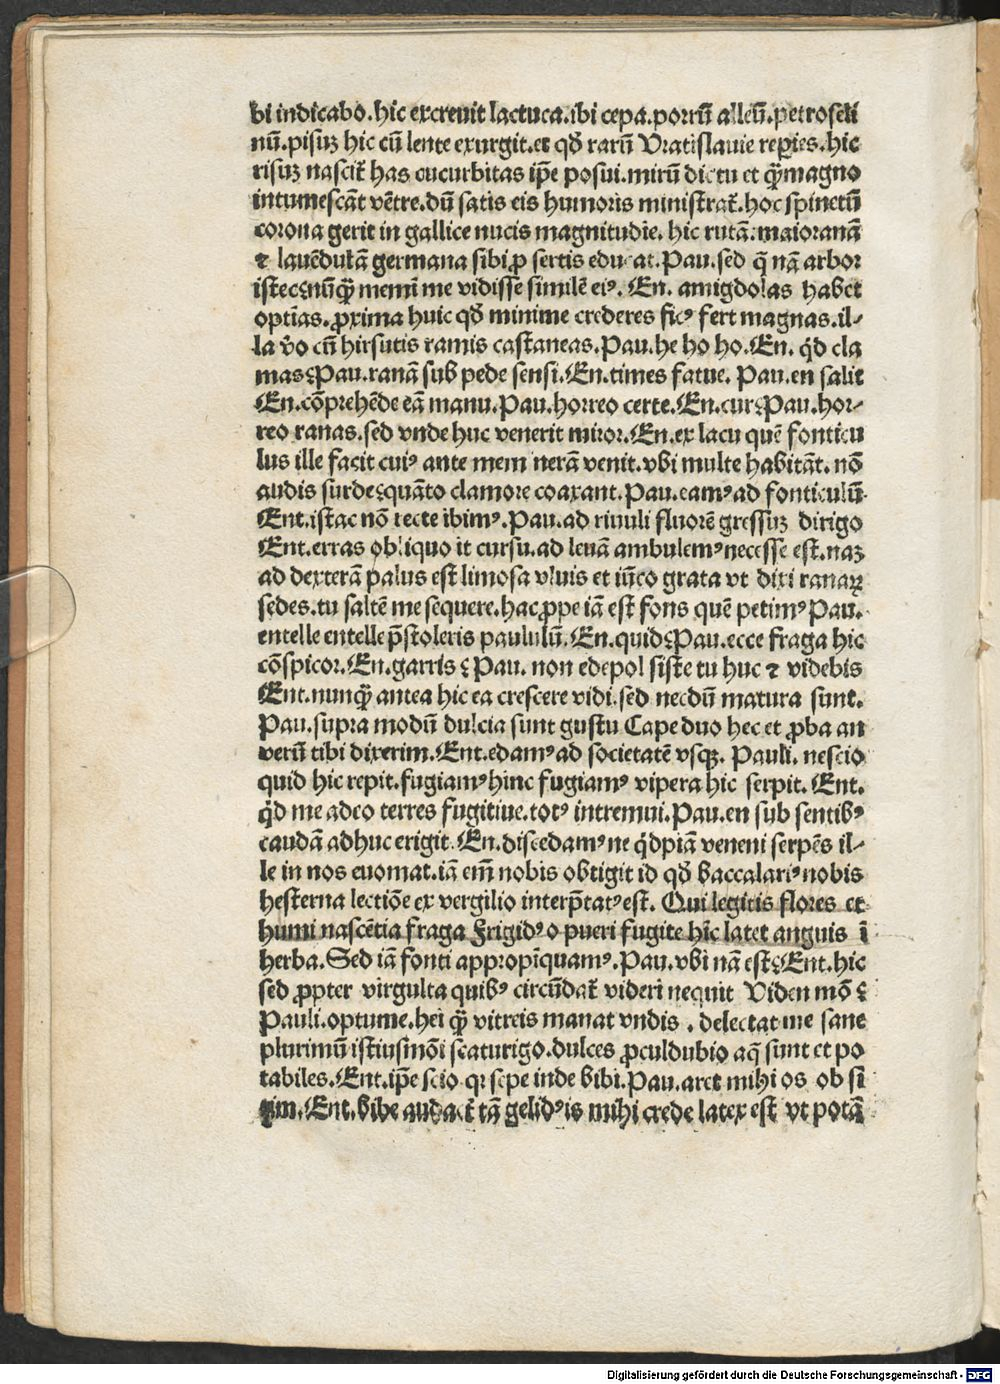 bi indicabo.hic excreuit lactuca.ibi cepa.porrū alleū.petroseli
nū.pisuꝫ hic cū lente exurgit.et qḋ rarū Vratislauie reꝑies.hic
risuꝫ nascit᷑ has cucurbitas ip̄e posui.mirū dictu et q̄ꝫ magno
intumescāt vētre.dū satis eis humoris ministrat᷑.hoc spinetū
corona gerit in gallice nucis magnitudīe. hic rutā.maioranā
⁊ lauēdulā germana sibi ꝓ sertis educat.Pau.sed q̄ nā arbor
istec?nūq̄ꝫ memī me vidisse similē eiꝰ. En. amigdolas habet
optīas.ꝓxima huic qḋ minime crederes ficꝰ fert magnas.il-
la v̊o cū hirsutis ramis castaneas.Pau.he ho ho.En. q̇d cla
mas?Pau.ranā sub pede sensi.En.times fatue. Pau.en salit
En.cōprehēde eā manu.Pau.horreo certe.En.cur?Pau.hor-
reo ranas.sed vnde huc venerit miror.En.ex lacu quē fonticu
lus ille facit cuiꝰ ante mem nerā venit.vbi multe habitāt. nō
audis surde?quāto clamore coaxant.Pau.eamꝰ ad fonticulū
Ent.istac nō recte ibimꝰ.Pau.ad riuuli fluorē gressuꝫ dirigo
Ent.erras obliquo it cursu.ad leuā ambulemꝰ necesse est.naꝫ
ad dexterā palus est limosa vluis et iūco grata vt dixi ranaꝝ
sedes.tu saltē me sequere.hac ꝓpe iā est fons quē petimꝰ Pau.
entelle entelle p̄stoleris paululū.En.quid?Pau.ecce fraga hic
cōspicor.En.garris? Pau. non edepol siste tu huc ⁊ videbis
Ent.nunq̄ꝫ antea hic ea crescere vidi.sed necdū matura sunt.
Pau.supra modū dulcia sunt gustu Cape duo hec et ꝓba an
verū tibi dixerim.Ent.edamꝰ ad societatē vsqꝫ. Pauli. nescio
quid hic repit.fugiamꝰ hinc fugiamꝰ vipera hic serpit. Ent.
q̇d me adeo terres fugitiue.totꝰ intremui.Pau.en sub sentibꝰ
caudā adhuc erigit.En.discedamꝰ ne q̇dpiā veneni serpēs il-
le in nos euomat.iā em̄ nobis obtigit id qḋ baccalariꝰ nobis
hesterna lectiōe ex vergilio interp̄tatꝰ est. Qui legitis flores et
humi nascētia fraga Frigidꝰ o pueri fugite hīc latet anguis ī
herba.Sed iā fonti appropīquamꝰ.Pau.vbi nā est?Ent.hic
sed ꝓpter virgulta quibꝰ circūdat᷑ videri nequit Viden mō?
Pauli.optume.hei q̄ꝫ vitreis manat vndis . delectat me sane
plurimū istiusmōi scaturigo.dulces ꝓculdubio aq̄ sunt et po
tabiles.Ent.ip̄e scio qꝛ sepe inde bibi.Pau.aret mihi os ob si
tim.Ent.bibe audact᷑ tā gelidꝰ is mihi crede latex est vt potā
Digitalisierung gefördert durch die Deutsche Forschungsgemeinschaft - DFG